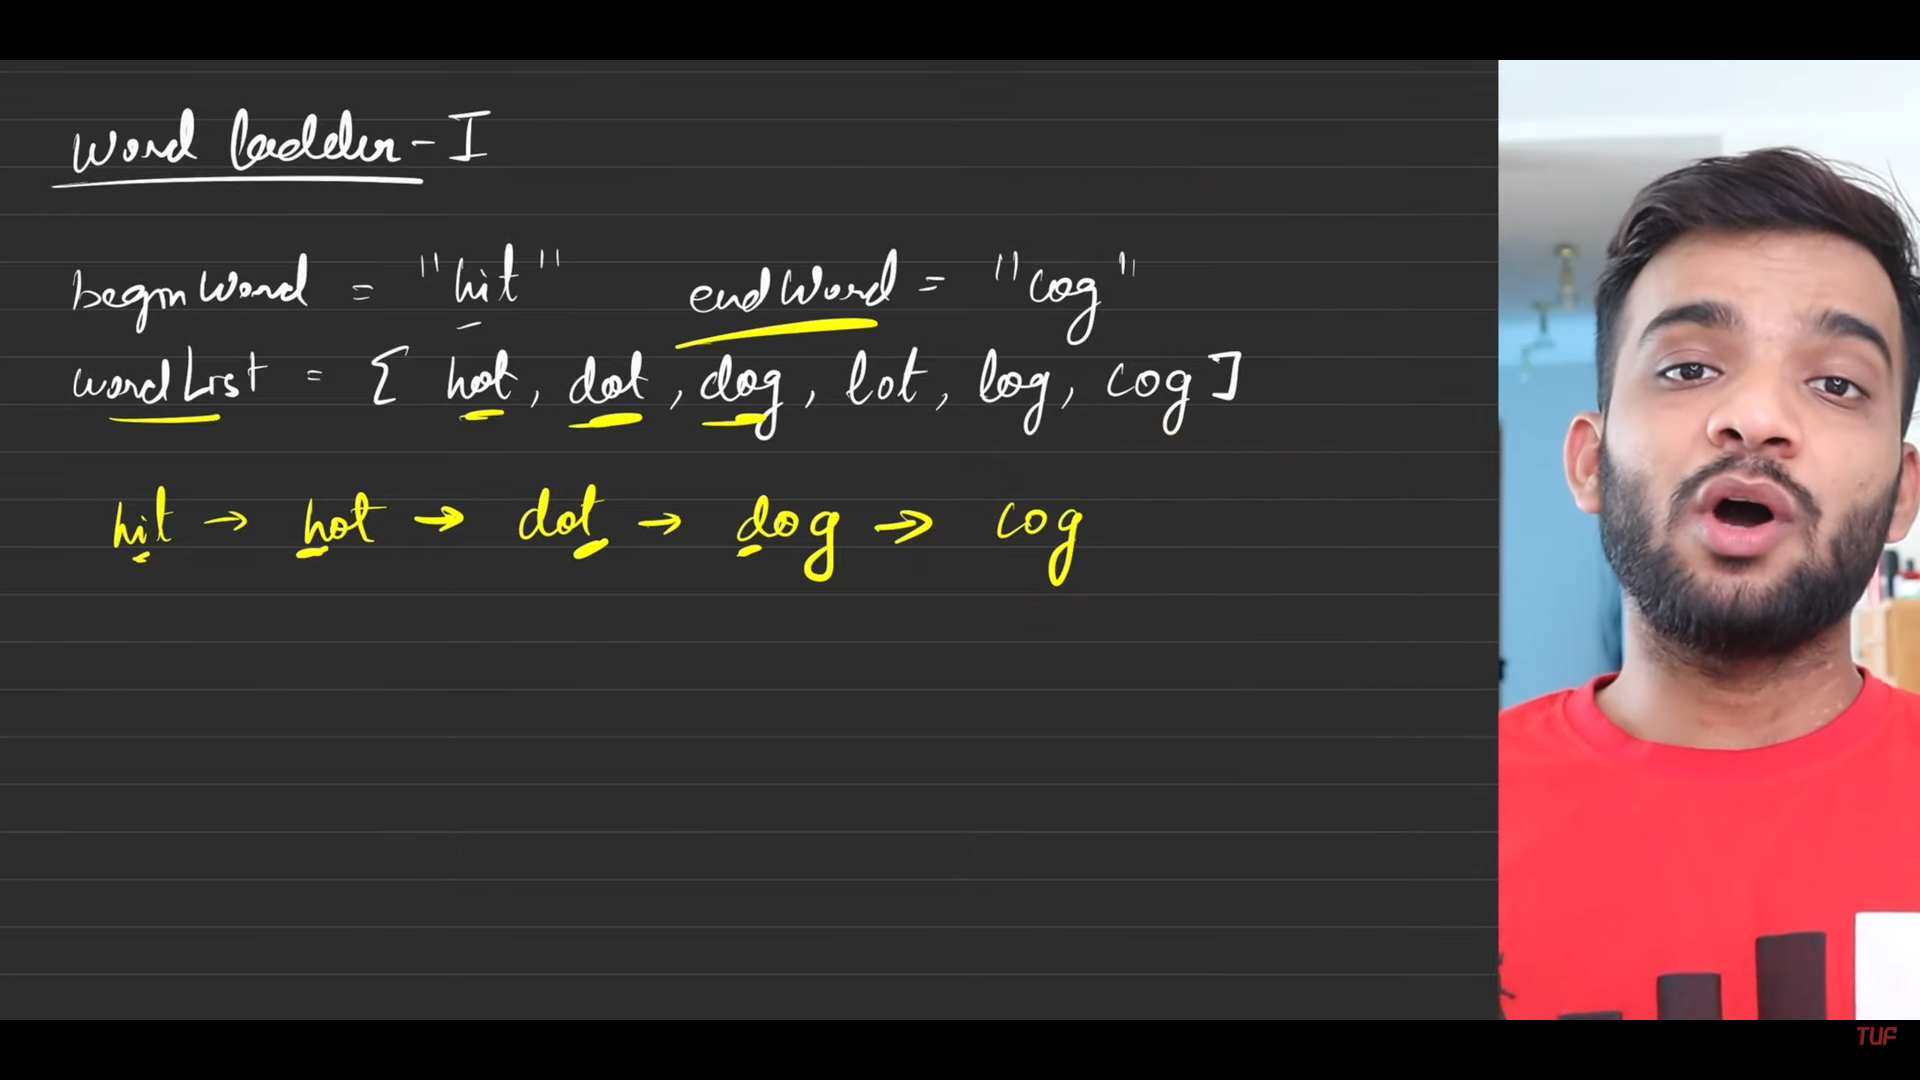 Word Ladder - I
beginWord = "hit" endWord = "cog"
wordList = [ hot, dot, dog, lot, log, cog ]
hit → hot → dot → dog → cog
TUF